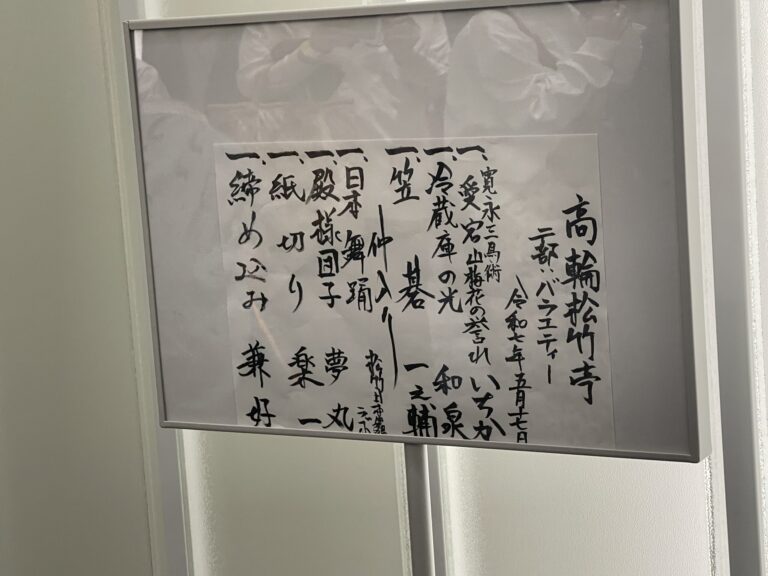 高輪松竹亭
二部:バラエティー
令和七年五月十七日
一、寛永三馬術
愛宕山梅花の誉れ いちか
一、冷蔵庫の光 和泉
一、笠碁 一之輔
仲入り
一、日本舞踊
一、殿様団子 夢丸
一、紙切り 楽一
一、締め込み 兼好